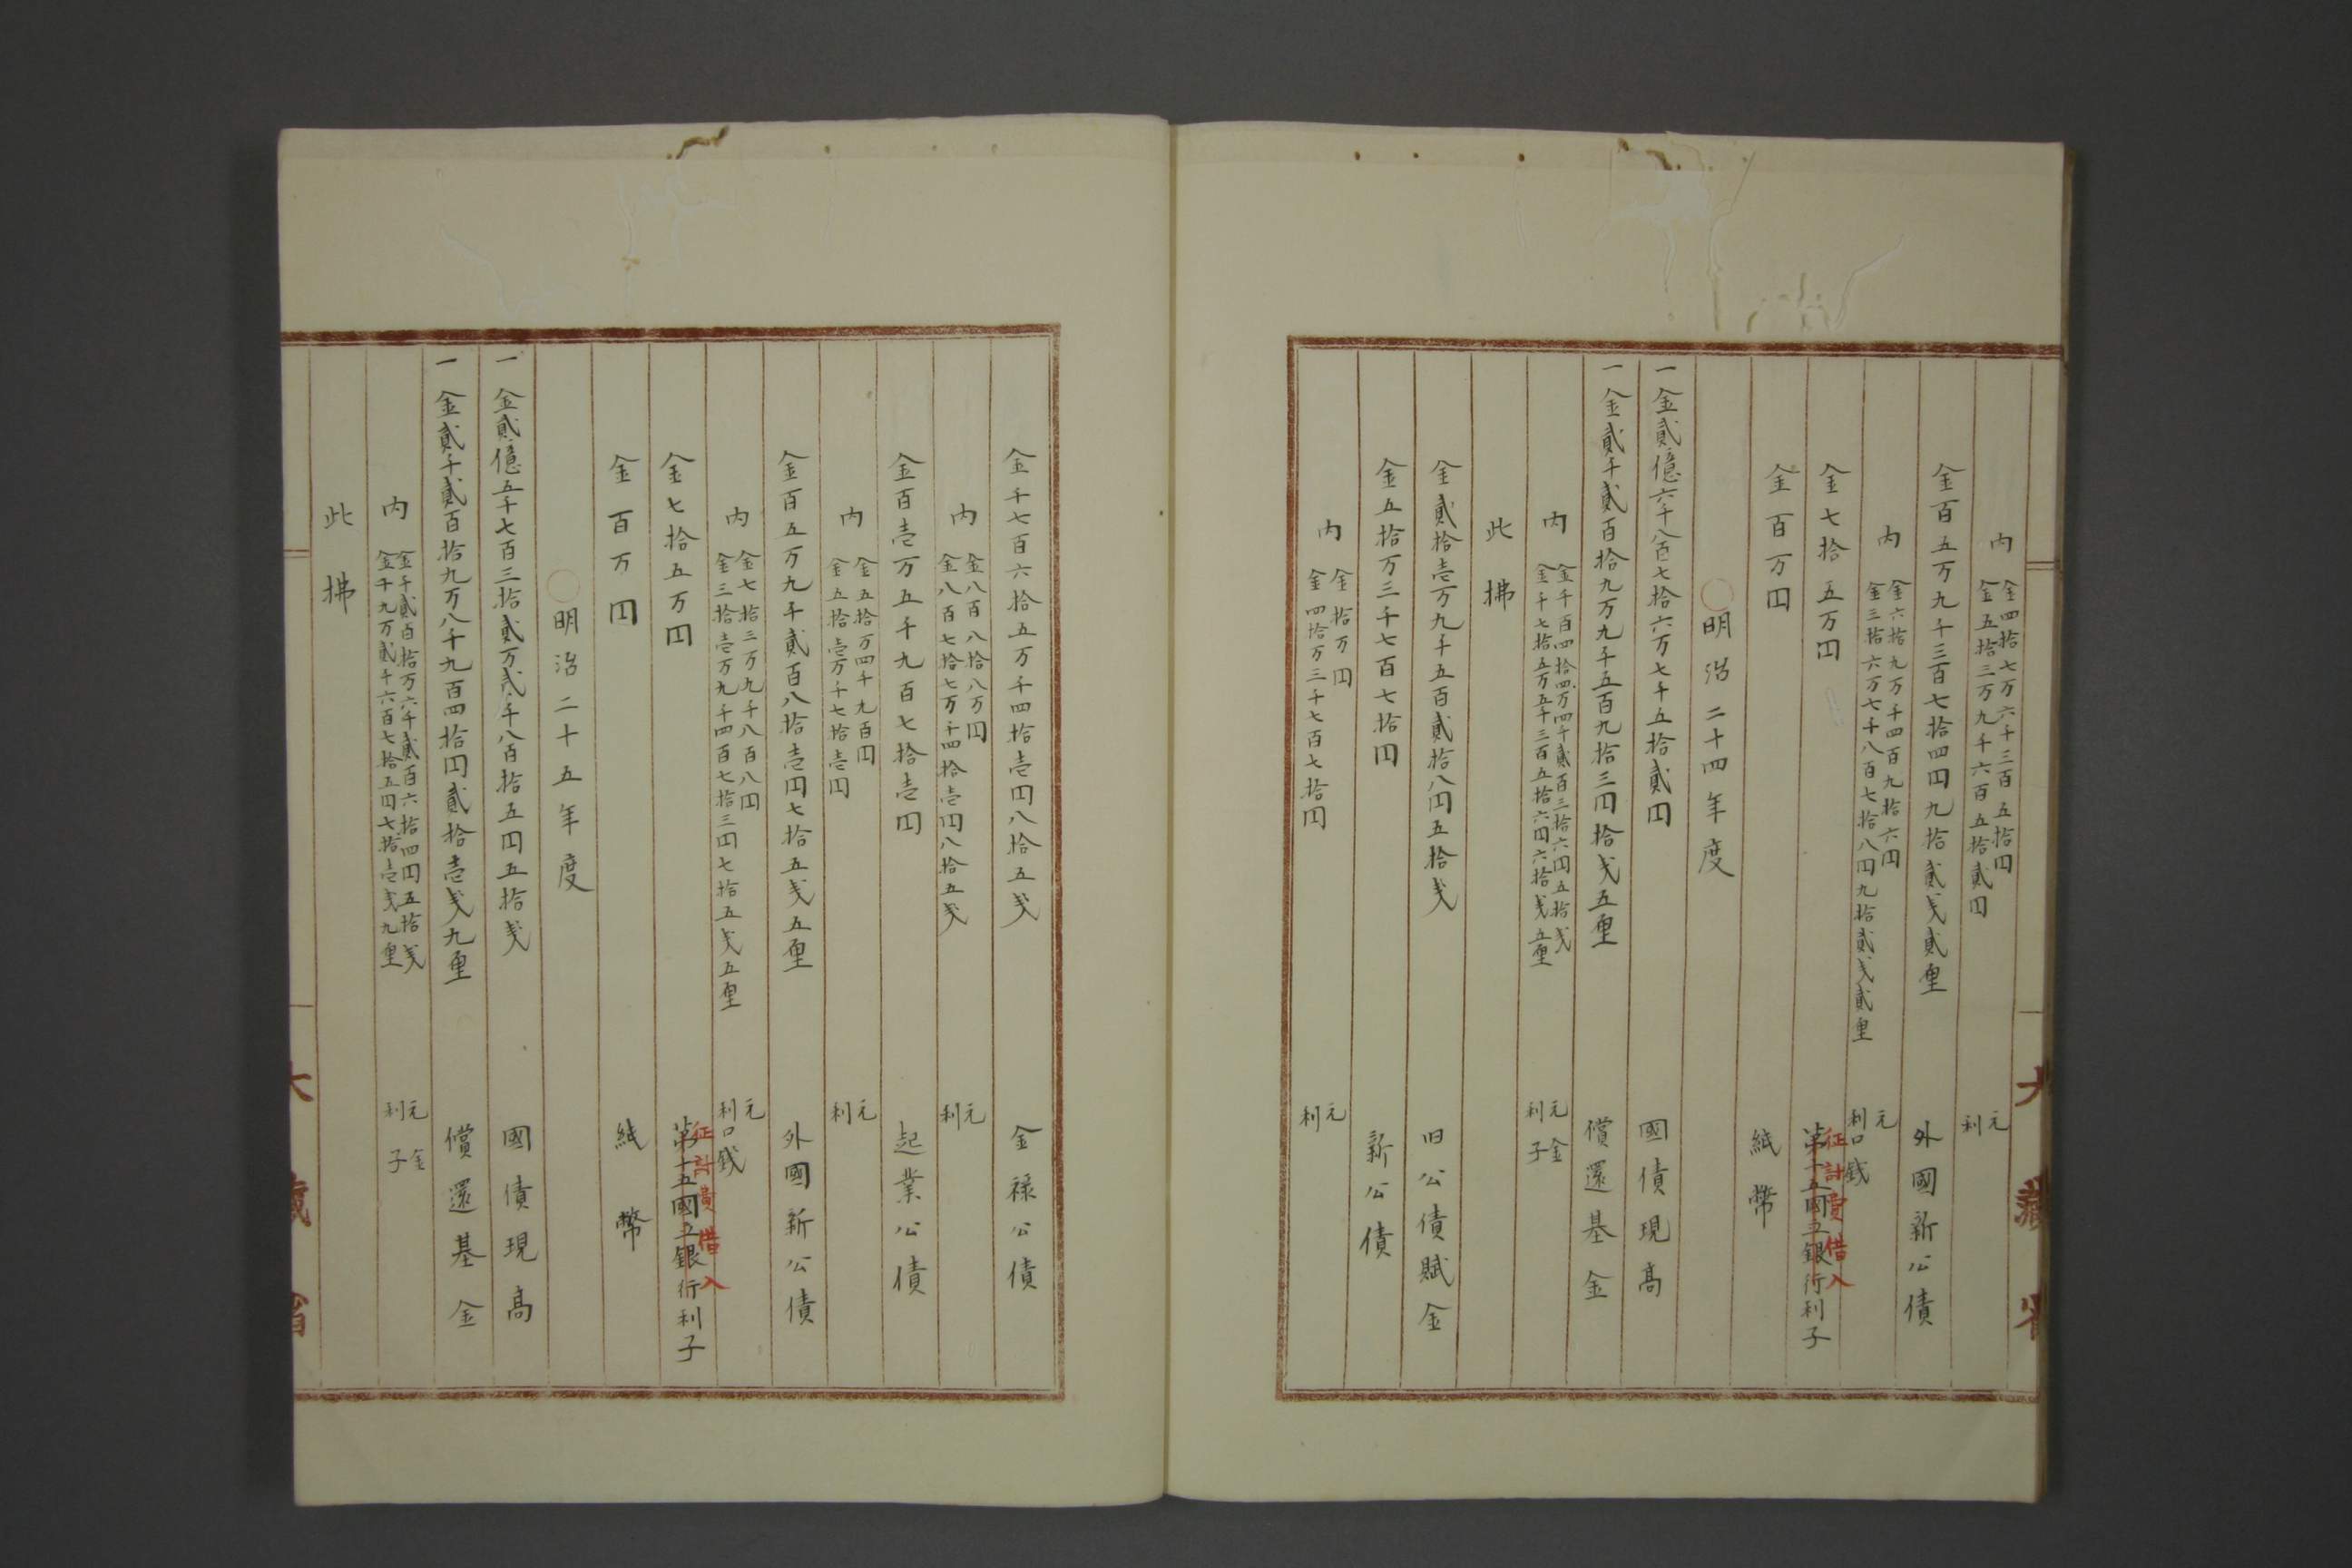 内 金四拾七万六千三百五拾円 元
金五拾三万九千六百五拾貳円 利
金百五万九千三百七拾四円九拾貳戋貳厘 外國新公債
内 金六拾九万千四百九拾六円 元
金三拾六万七千八百七拾八円九拾貳戋貳厘 利口銭
金七拾五万円 第十五國立銀行利子
征討費借入
金百万円 紙幣
○明治二十四年度
一金貳億六千八百七拾六万七千五拾貳円 國債現高
一金貳千貳百拾九万九千五百九拾三円拾戋五厘 償還基金
内 金千百四拾四万四千貳百三拾六円五拾戋 元金
金千七拾五万五千三百五拾六円六拾戋五厘 利子
此拂
金貳拾壱万九千五百貳拾八円五拾戋 旧公債賦金
金五拾万三千七百七拾円 新公債
内 金拾万円 元
金四拾万三千七百七拾円 利
大藏省
金千七百六拾五万千四拾壱円八拾五戋 金禄公債
内 金八百八拾八万円 元
金八百七拾七万千四拾壱円八拾五戋 利
金百壱万五千九百七拾壱円 起業公債
内 金五拾万四千九百円 元
金五拾壱万千七拾壱円 利
金百五万九千貳百八拾壱円七拾五戋五厘 外國新公債
内 金七拾三万九千八百八円 元
金三拾壱万九千四百七拾三円七拾五戋五厘 利口戋
金七拾五万円 第十五國立銀行利子
征討費借入
金百万円 紙幣
○明治二十五年度
一金貳億五千七百三拾貳万貳千八百拾五円五拾戋 國債現高
一金貳千貳百拾九万八千九百四拾円貳拾壱戋九厘 償還基金
内 金千貳百拾万六千貳百六拾四円五拾戋 元金
金千九万貳千六百七拾五円七拾壱戋九厘 利子
此拂
大藏省